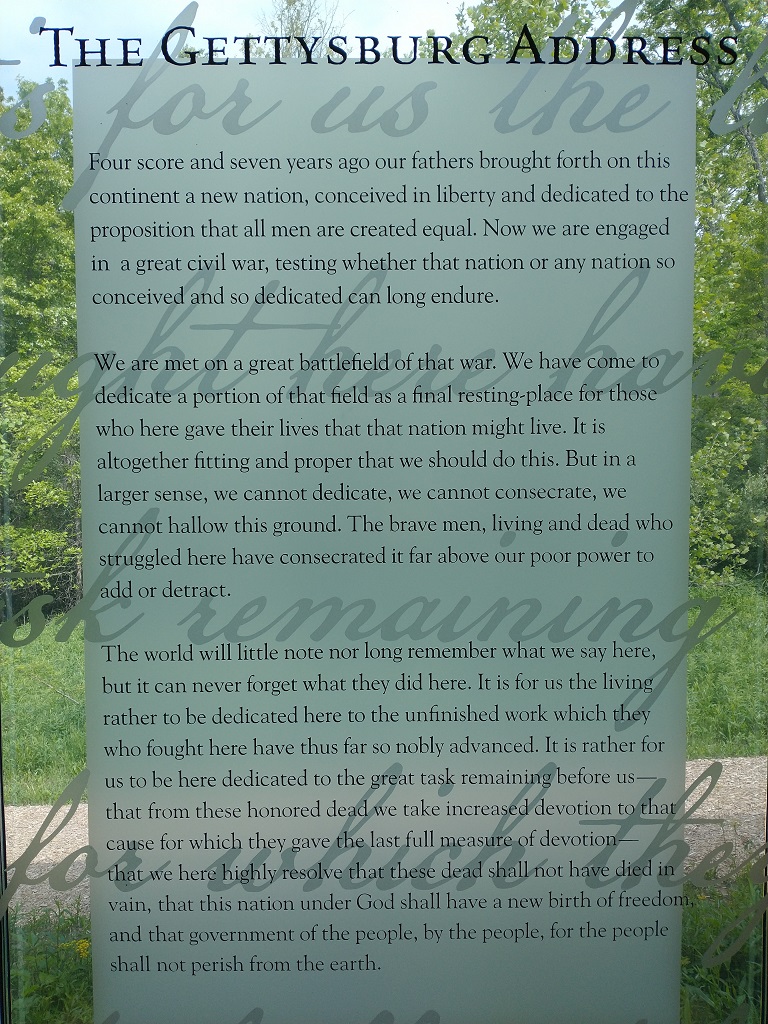 THE GETTYSBURG ADDRESS
's for us the l
Four score and seven years ago our fathers brought forth on this
continent a new nation, conceived in liberty and dedicated to the
proposition that all men are created equal. Now we are engaged
in a great civil war, testing whether that nation or any nation so
conceived and so dedicated can long endure.
ught here hav
We are met on a great battlefield of that war. We have come to
dedicate a portion of that field as a final resting-place for those
who here gave their lives that that nation might live. It is
altogether fitting and proper that we should do this. But in a
larger sense, we cannot dedicate, we cannot consecrate, we
cannot hallow this ground. The brave men, living and dead who
struggled here have consecrated it far above our poor power to
add or detract.
sk remaining
The world will little note nor long remember what we say here,
but it can never forget what they did here. It is for us the living
rather to be dedicated here to the unfinished work which they
who fought here have thus far so nobly advanced. It is rather for
us to be here dedicated to the great task remaining before us—
that from these honored dead we take increased devotion to that
cause for which they gave the last full measure of devotion—
for which they
that we here highly resolve that these dead shall not have died in
vain, that this nation under God shall have a new birth of freedom,
and that government of the people, by the people, for the people
shall not perish from the earth.